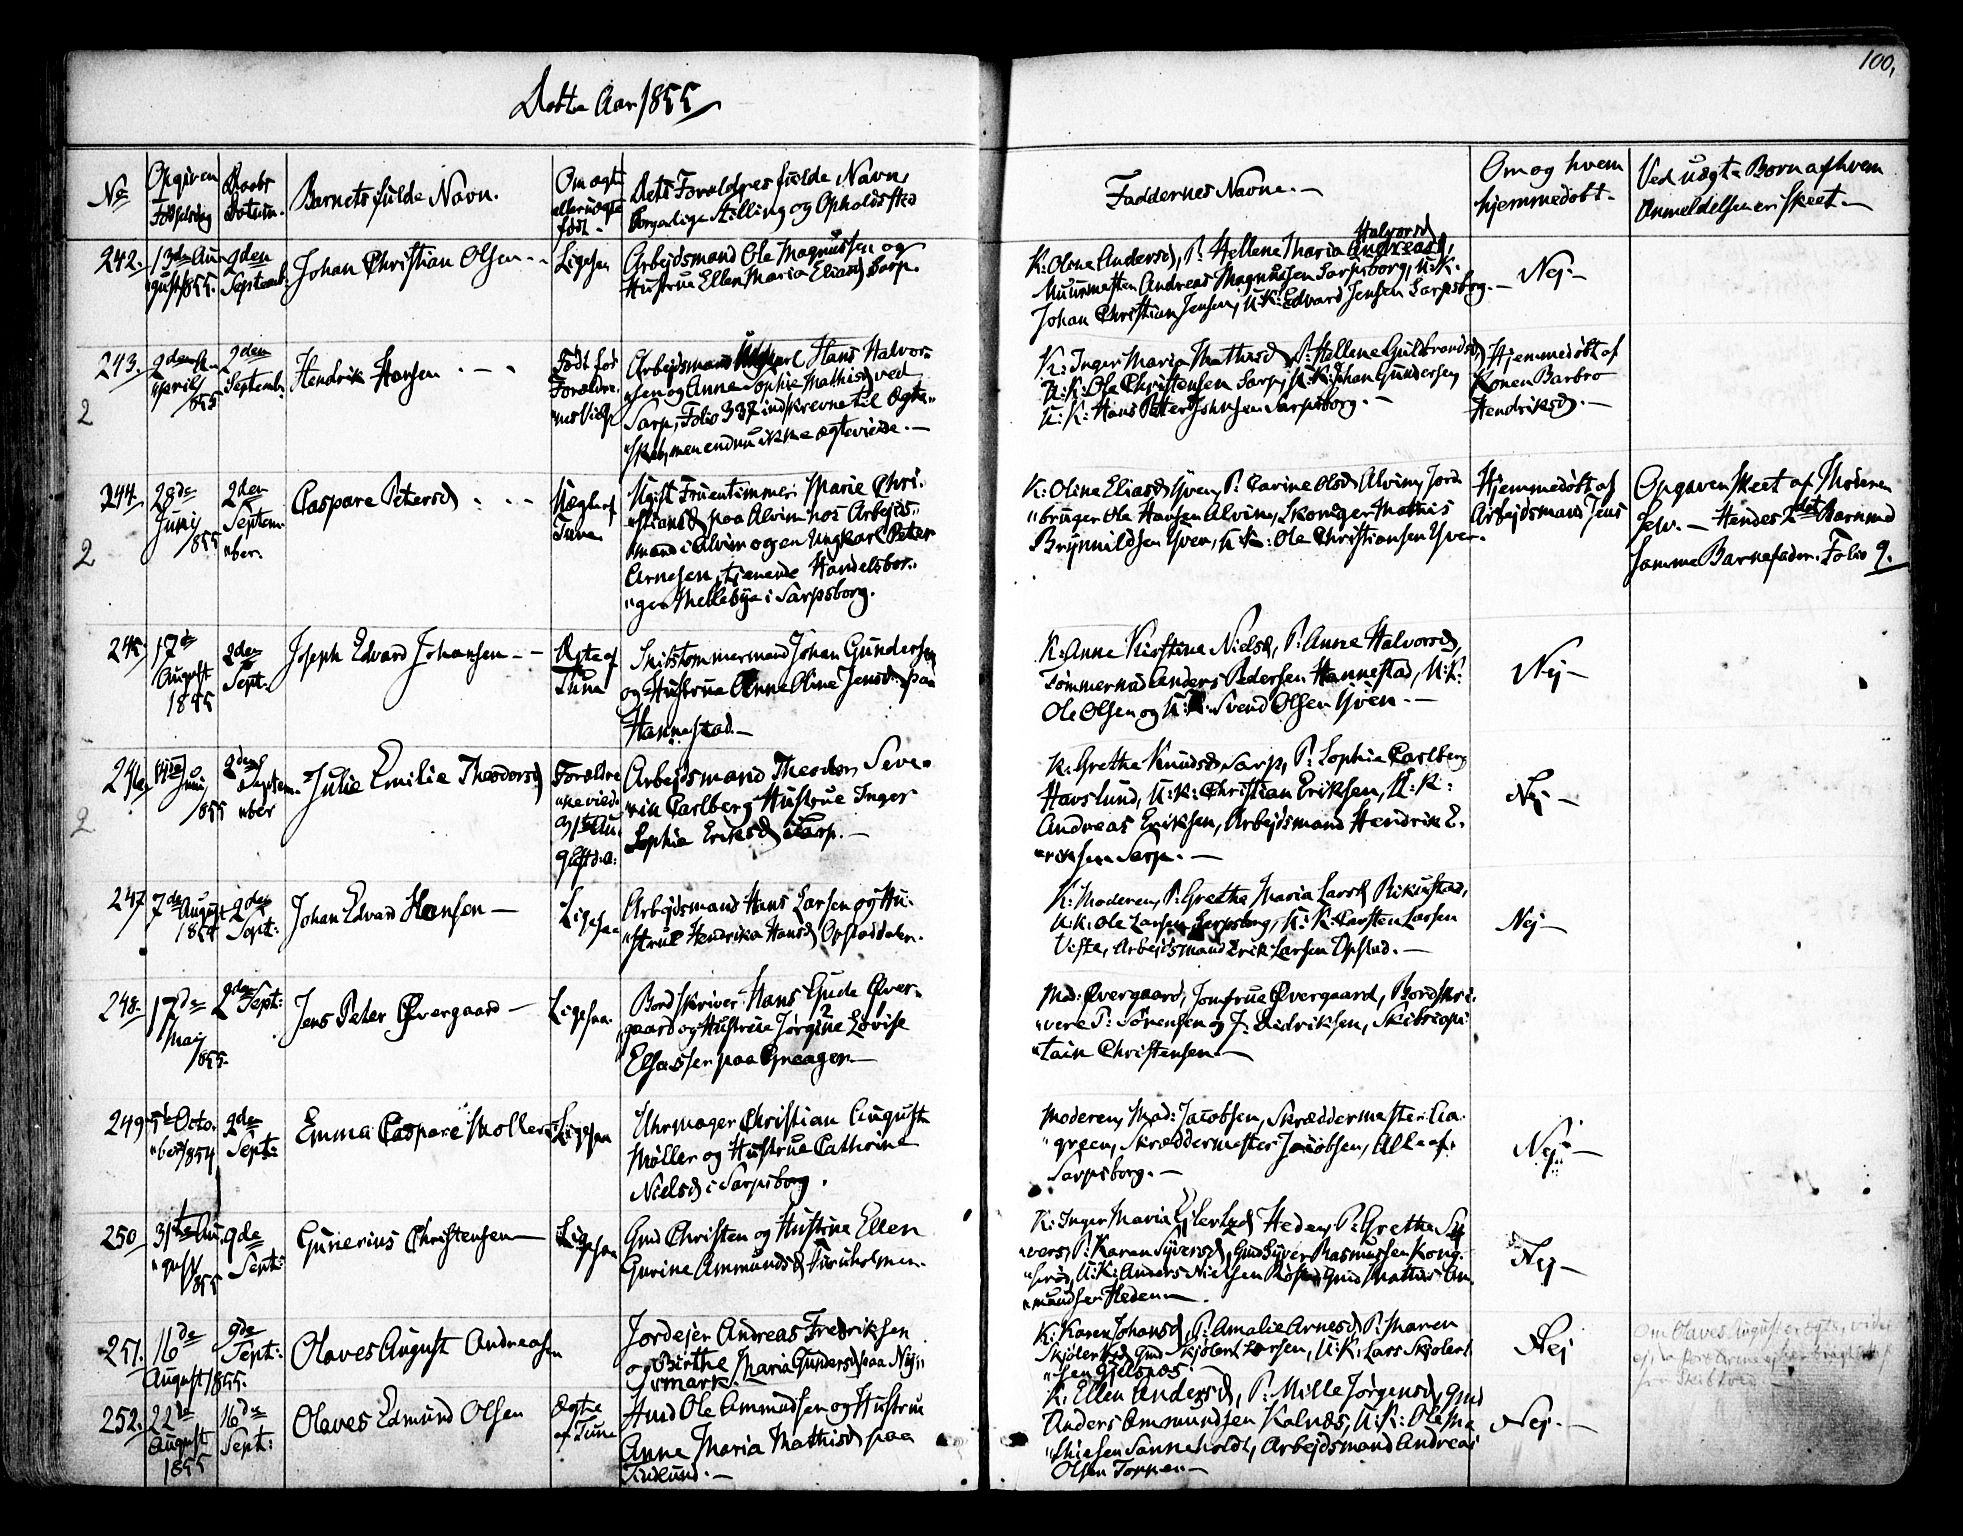 100,
Døbte Aar 1855
No
Opgiven
Fødselsdag
Daabs
Datum.
Barnets fulde Navn.
Om ægte
eller uægte
født.
Dets Forældres fulde Navn,
borgerlige Stilling og Opholdssted
Faddernes Navne. —
Om og hvem
hjemmedøbt. -
Ved uægte Børn af hvem
Anmeldelsen er skeet. —
242.
13de Au-
"gust 1855.
2den
Septemb:
Johan Christian Olsen
Ligesaa
Arbejdsmand Ole Magnussen og
Hustrue Ellen Maria Eliasd Sarp.
K: Oline Andersd, P: Hellene Maria Halvorsd
Muurmester Andreas Magnussen Sarpsborg, U:K:
Johan Christian Jensen, U:K: Edvard Jensen Sarpsborg. —
Nej —
243.
2
2den
April
1855
2den
Septemb:
Hendrik Hansen
Født før
Forældre-
nes Vielse
Arbejdsmand Ungkarl Hans Halvor-
"sen og Anne Sophie Mathisd ved
Sarp, Folio 337 indskrevne til Ægte-
"skab, men endnu ikke ægteviede. —
K: Inger Maria Mathisd P: Hellene Guldbrandsd
U:K: Ole Christensen Sarp, U:K: Johan Gundersen
U:K: Hans Petter Johnsen Sarpsborg. —
Hjemmedøbt af
Konen Barbro
Hendriksd. —
244.
2
28de
Junj
1855
2den
Septem-
"ber.
Caspare Petersd
Uægte af
Tune
Ugift Fruentimmer Marie Chri-
"stiansd paa Alvim hos Arbejds-
mand i Alvim og en Ungkarl Peter
Arnesen, tjenende Handelsbor-
"ger Mellebye i Sarpsborg.
K: Oline Eliasd Yven, P: Carine Olsd Alvim, Jord-
"bruger Ole Hansen Alvim, Skomager Mathis
Brynnildsen Yven, U:K: Ole Christiansen Yven.
Hjemmedøbt af
Arbejdsmand Jens
Opgaven skeet af Moderen
selv. — Hendes 2det Barn med
samme Barnefader. Folio 9.
245.
17de
August
1855
2den
Sept.
Joseph Edvard Johansen
Ægte af
Tune
Skibstømmermand Johan Gundersen
og Hustrue Anne Oline Jensd paa
Hannestad. —
K: Anne Kirstine Nielsd, P: Anne Halvorsd,
Tømmermd Anders Pedersen Hannestad, U:K:
Ole Olsen og U:K: Svend Olsen Yven. —
Nej —
246.
2
Juni
1855
2den
Septem-
"ber
Julie Emilie Theodorsd
Forældre
Arbejdsmand Theodor Seve-
"rin Carlberg Hustrue Inger
Sophie Eriksd i Sarp. —
K: Grethe Knudsd Sarp, P: Sophie Carlberg
Havslund, U:K: Christian Eriksen, U:K:
Andreas Eriksen, Arbejdsmand Hendrik E-
"riksen Sarp. —
Nej —
247.
7de August
1855
2den
Sept:
Johan Edvard Hansen —
Ligesaa
Arbejdsmand Hans Larsen og Hu-
"strue Hendrika Hansd Opstaddalen.
K: Moderen, P: Grethe Maria Larsd Rikustad,
U:K: Ole Larsen Sarpsborg, U:K: Carsten Larsen
Viste, Arbejdsmand Erik Larsen Opstad. —
Nej —
248.
17de
Maj
1855.
2den Sept:
Jens Peter Øvergaard —
Ligesaa.
Bordskriver Hans Gude Øver-
"gaard og Hustrue Jørgine Lovise
Elsasser paa Greager —
Mad: Øvergaard, Jomfrue Øvergaard, Bordskri-
"vere P: Sørensen og J: Didriksen, Skibscapi-
"tain Christensen. —
249.
5te Octo-
"ber 1854
9de
Sept:
Emma Caspare Møller
Ligesaa
Uhrmager Christian August
Møller og Hustrue Cathrine
Nielsd i Sarpsborg.
Moderen, Mad: Jacobsen, Skræddermester Lia-
"green, Skræddermester Jacobsen, Alle af
Sarpsborg. —
Nej —
250
31te Au-
"gust
1855
9de
Sept:
Gunerius Christensen
Ligesaa
Gmd Christen og Hustrue Ellen
Gurine Ammundsd Furuholmen.
K: Inger Maria Ejlertsd Heden, P: Grethe Sy-
"vers, P: Karen Syversd, Gmd Syver Rasmussen Kong-
"serød, U:K: Anders Nielsen Gmd Mathis Am-
"mundsen Heden —
Nej —
251.
16de
August 1855.
9de
Sept:
Olaves August Andreasen
Jordejer Andreas Fredriksen
og Birthe Maria Gundersd paa Ny-
"mark. —
K: Karen Johansd, P: Amalie Arnesd P: Maren
Skjølertsd, Gmd Skjølert Larsen, U:K: Lars Skjølert-
"sen Gjelsnes.
Nej
Om Olaves August er ægte, vides
252.
22de
August
1855
16de
Sept:
Olaves Edmund Olsen
Ægte
af Tune
Hmd Ole Ammundsen og Hustrue
Anne Maria Mathisd paa
Tindlund. —
K: Ellen Andersd, P: Mille Jørgensd, Gmd
Anders Ammundsen Kalnæs, U:K: Ole Ma-
"thisen Sanneholdt, Arbejdsmand Andreas
Olsen Torper. —
Nej. —